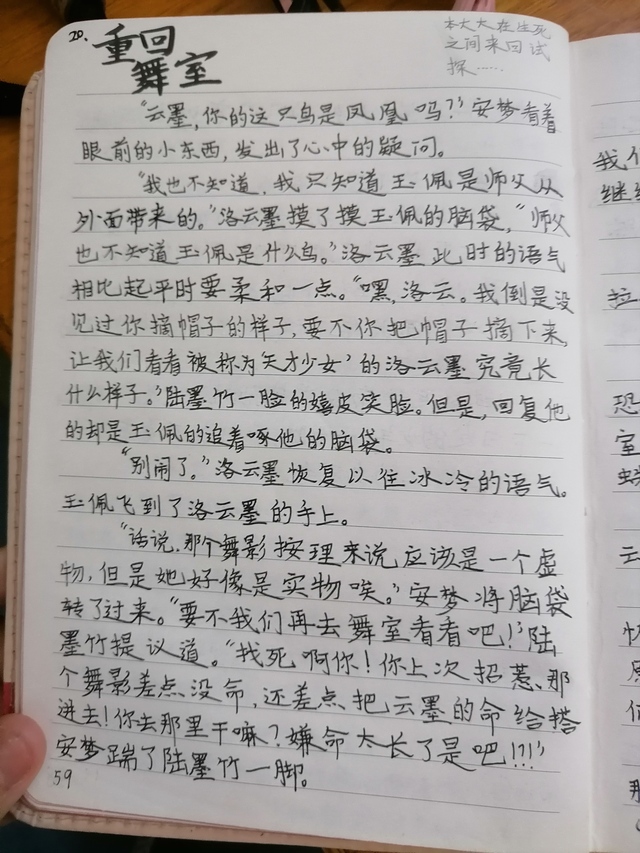 20. 重回
舞室
本大大在生死
之间来回试
探……
“云墨，你的这只鸟是凤凰吗？”安梦看着
眼前的小东西，发出了心中的疑问。
“我也不知道，我只知道玉佩是师父从
外面带来的。”洛云墨摸了摸玉佩的脑袋，“师父
也不知道玉佩是什么鸟。”洛云墨此时的语气
相比起平时要柔和一点。“嘿，洛云。我倒是没
见过你摘帽子的样子，要不你把帽子摘下来，
让我们看看被称为‘天才少女’的洛云墨究竟长
什么样子。”陆墨竹一脸的嬉皮笑脸。但是，回复他
的却是玉佩的追着啄他的脑袋。
“别闹了。”洛云墨恢复以往冰冷的语气。
玉佩飞到了洛云墨的手上。
“话说，那个舞影按理来说应该是一个虚
物，但是她好像是实物唉。”安梦将脑袋
转了过来。“要不我们再去舞室看看吧！”陆
墨竹提议道。“找死啊你！你上次招惹、那
个舞影差点没命，还差点把云墨的命给搭
进去！你去那里干嘛？嫌命太长了是吧！？！”
安梦踹了陆墨竹一脚。
59
我们
继续
拉
恐
室
云